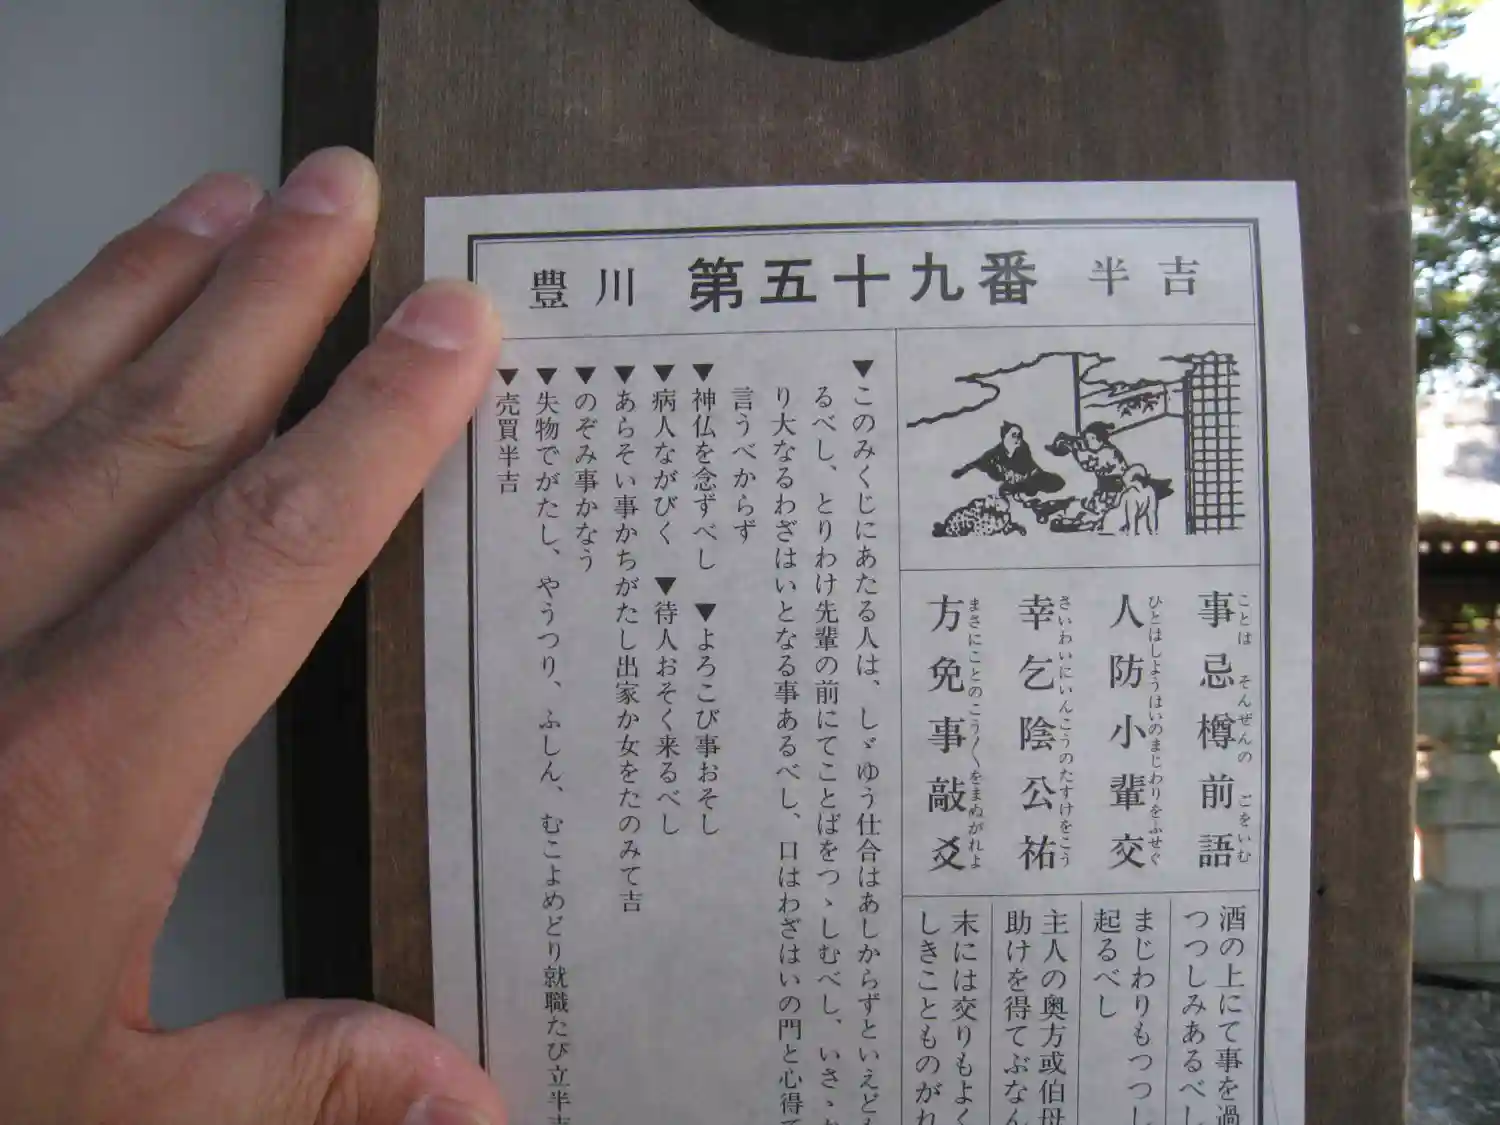 豊川 第五十九番 半吉
事忌樽前語
ことは そんぜんの ごをいむ
人防小輩交
ひとはしようはいのまじわりをふせぐ
幸乞陰公祐
さいわいにいんこうのたすけをこう
方免事敲爻
まさにことのこう〱をまぬがれよ
酒の上にて事を過
つつしみあるべし
まじわりもつつし
起るべし
主人の奥方或伯母
助けを得てぶなん
末には交りもよく
しきこともの​がれ
▼このみくじにあたる人は、しゞゆう仕合はあしからずといえども
るべし、とりわけ先輩の前にてことばをつゝしむべし、いさゝか
り大なるわざはいとなる事あるべし、口はわざはいの門と心得て
言うべからず
▼神仏を念ずべし ▼よろこび事おそし
▼病人ながびく ▼待人おそく来るべし
▼あらそい事かちがたし出家か女をたのみて吉
▼のぞみ事かなう
▼失物でがたし、やうつり、ふしん、むこよめどり就職たび立半吉
▼売買半吉